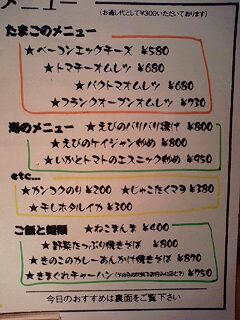 メニュー
(お通し代として¥300いただいております)
たまごのメニュー
★ベーコンエッグチーズ ¥580
★トマチーオムレツ ¥680
★パクトマオムレツ ¥680
★フランクオープンオムレツ ¥730
海のメニュー ★えびのパリパリ揚げ ¥800
★えびのケイジャン炒め ¥800
★いかとトマトのエスニック炒め ¥950
etc...
★カンコクのり ¥200 ★じゃこたくマヨ ¥380
★干しホタルイカ ¥300
ご飯と麺類 ★ねこまんま ¥400
★野菜たっぷり焼きそば ¥800
★きのこのカレーあんかけ焼きそば ¥870
★きまぐれチャーハン ¥750
今日のおすすめは裏面をご覧下さい